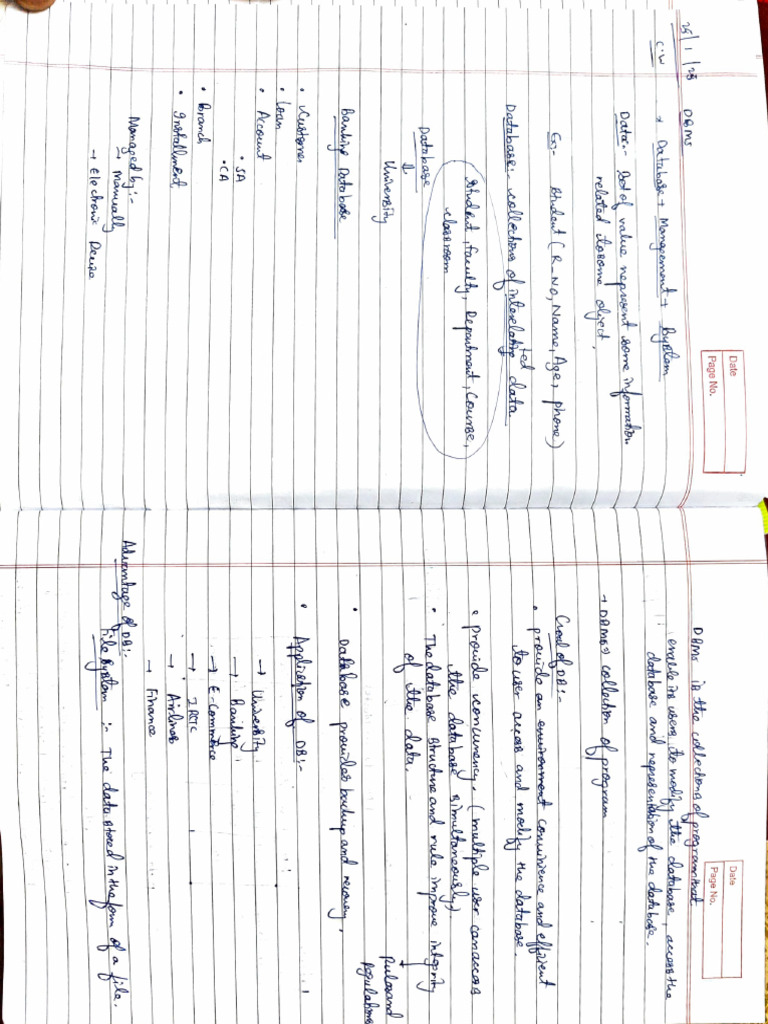 Date
Page No.
25/1/23
C.W
DBMS
* Database + Management + System
Data:- Set of value represent some information
related to some object.
Eg- Student (R_No, Name, Age, Phone)
Database:- collections of interelating data
ted
Student, Faculty, Department, Course,
classroom
Database
↓
University
Banking Database
• Customer
• Loan
• Account
• SA
• CA
• Branch
• Installment
Managed by:-
→ Manually
→ Electronic Device
Date
Page No.
DBMS is the collections of program that
enable its users to modify the database, access the
database and representation of the database.
→ DBMS → collection of program
Goal of DB:-
• provide an environment convinience and efficient
to user access and modify the database.
• provide concurrency. (multiple user can access
the database simultaneously)
• The database structure and rule improve integrity
of the data.
Rules and
regulations
• Database provides backup and recovery.
• Application of DB:-
→ University
→ Banking
→ E-Commerce
→ IRCTC
→ Airlines
→ Finance
Advantage of DB:-
File System :- The data stored in the form of a file.